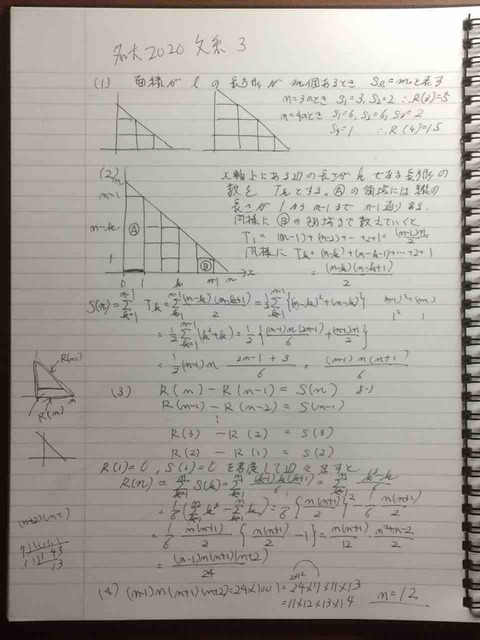 名大2020 文系 3
(1) 面積が l の長方形が m個あるとき Sl=mと表す
n=3のとき S1=3, S2=2 ∴R(3)=5
n=4のとき S1=6, S2=6, S3=2
S4=1 ∴R(4)=15
(2) x軸上にある辺の長さが k である長方形の
数を Tkとする。Ⓐの領域には縦の
長さが 1から n-1まで n-1通りある。
同様に Ⓑの領域まで数えていくと
T1=(n-1)+(n-2)+…+2+1=(n-1)n/2
同様に Tk=(n-k)+(n-k-1)+…+2+1
=(n-k)(n-k+1)/2
n
n-1
n-k
1
Ⓐ
Ⓑ
0 1 k n-1 n x
S(n)=Σ Tk=Σ (n-k)(n-k+1)/2=1/2 Σ{(n-k)²+(n-k)}
=1/2 Σ(k²+k)=1/2{(n-1)n(2n-1)/6+(n-1)n/2}
=1/2(n-1)n (2n-1+3)/6=(n-1)n(n+1)/6
R(n-1)
R(n)
n
(3) R(n)-R(n-1)=S(n) より
R(n-1)-R(n-2)=S(n-1)
⋮
R(3)-R(2)=S(3)
R(2)-R(1)=S(2)
R(1)=0, S(1)=0 を考慮して辺々足すと
R(n)=Σ S(k)=Σ (k-1)k(k+1)/6=Σ (k³-k)/6
=1/6(Σk³-Σk)=1/6{n(n+1)/2}²-1/6 n(n+1)/2
=1/6 n(n+1)/2{n(n+1)/2-1}=n(n+1)/12 (n²+n-2)/2
=(n-1)n(n+1)(n+2)/24
(4) (n-1)n(n+1)(n+2)=24×1001=24×7×11×13
2×12
=11×12×13×14 n=12